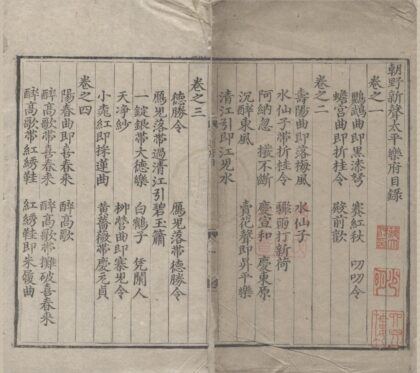 朝野新聲太平樂府目錄
卷之一
鸚鵡曲即黑漆弩 賽紅秋 叨叨令
蟾宮曲即折桂令 殿前歡
卷之二
壽陽曲即落梅風 水仙子
水仙子帶折桂令 驟雨打新荷
阿納忽 撥不斷 慶宣和 慶東原
沉醉東風 賣花聲即昇平樂
清江引即江兒水
卷之三
德勝令 鴈兒落帶德勝令
鴈兒落帶過清江引碧玉簫
一錠銀帶大德樂 白鶴子 凭闌人
天净紗 柳營曲即寨兒令
小桃紅即採蓮曲 黃薔薇帶慶元貞
卷之四
陽春曲即喜春來 醉高歌
醉高歌帶喜春來 醉高歌帶攤破喜春來
醉高歌帶紅綉鞋 紅綉鞋即朱履曲